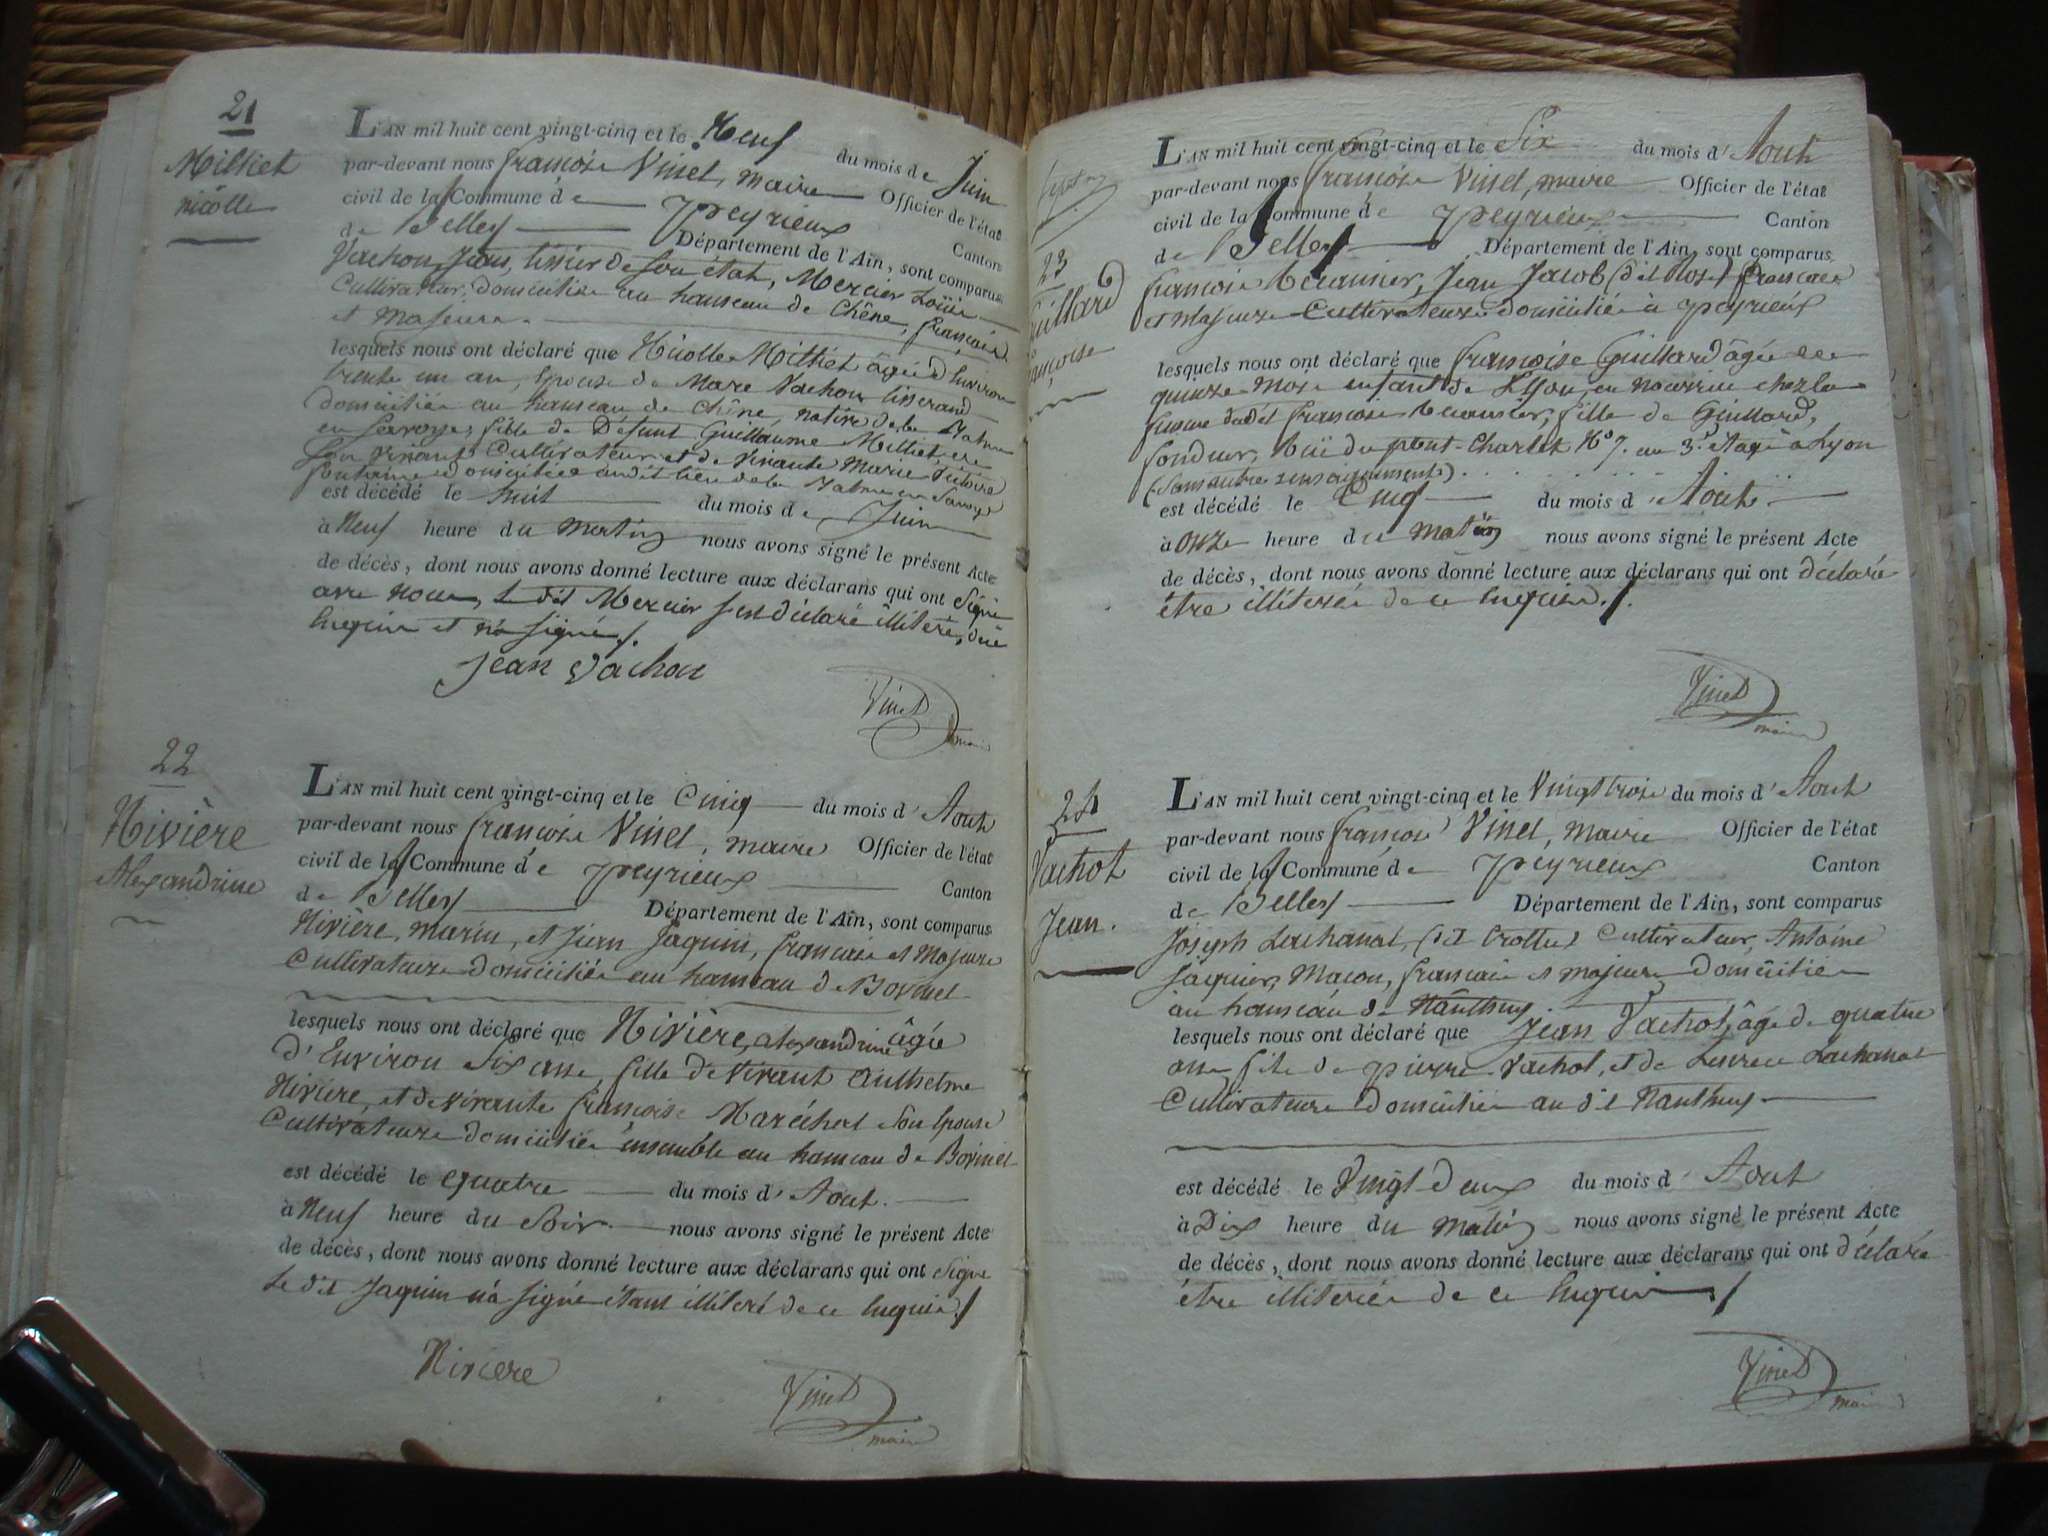 21
Milliet
nicolle
L'AN mil huit cent vingt-cinq et le Neuf du mois de Juin
par-devant nous françois Vinet, maire Officier de l'état
civil de la Commune de peyrieux Canton
de Belley Département de l'Ain, sont comparus
Vachon Jean, tissier de son état, Mercier
Cultivateur, domicilié au hameau de Chêne, français
et majeurs
lesquels nous ont déclaré que Nicolle Milliet âgée d'Environ
trente un an, Epouse de Marc Vachon tisserand
domicilié au hameau de Chêne, native de la Balme
en Savoye, fille de Défunt Guillaume Milliet, de
son vivant Cultivateur et de vivante Marie
domiciliée audit lieu de la Balme en Savoye
est décédé le huit du mois de Juin
à Neuf heure du Matin nous avons signé le présent Acte
de décès, dont nous avons donné lecture aux déclarans qui ont Signé
avec nous, le dit Mercier s'est déclaré illiteré, de ce
Enquis et n'a signé ./.
Jean Vachon
Vinet
maire
22
Rivière
Alexandrine
L'AN mil huit cent vingt-cinq et le Cinq du mois d'Aout
par-devant nous françois Vinet, maire Officier de l'état
civil de la Commune de peyrieux Canton
de Belley Département de l'Ain, sont comparus
Rivière, marin, et Jean Jaquin, français et majeurs
Cultivateurs domiciliés au hameau de Bovinel
lesquels nous ont déclaré que Rivière, alexandrine âgée
d'Environ Six ans, fille de vivant Anthelme
Rivière, et de vivante françoise Maréchal son Epouse
Cultivateurs domiciliés ensemble au hameau de Bovinel
est décédé le quatre du mois d'Aout.
à Neuf heure du Soir nous avons signé le présent Acte
de décès, dont nous avons donné lecture aux déclarans qui ont Signé
Le dit Jaquin n'a signé étant illiteré de ce Enquis ./
Riviere
Vinet
maire
23
Guillard
françoise
L'AN mil huit cent vingt-cinq et le Six du mois d'Aout
par-devant nous françois Vinet, maire Officier de l'état
civil de la Commune de peyrieux Canton
de Belley Département de l'Ain, sont comparus
françois, Jean Jacob (dit Rose) français
et Majeurs Cultivateurs domiciliés à peyrieux
lesquels nous ont déclaré que françoise Guillard âgée de
quinze mois enfant de Lyon, en nourrice chez la
femme dudit françois, fille de Guillard,
fondeur, Ruë du pont-Charlet N° 7. au 3e. étage à Lyon
(Sans autre renseignements)
est décédé le Cinq du mois d'Aout
à onze heure du matin nous avons signé le présent Acte
de décès, dont nous avons donné lecture aux déclarans qui ont déclaré
être illiterés de ce Enquis ./.
Vinet
maire
24
Vachot
Jean.
L'AN mil huit cent vingt-cinq et le Vingt trois du mois d'Aout
par-devant nous françois Vinet, maire Officier de l'état
civil de la Commune de peyrieux Canton
de Belley Département de l'Ain, sont comparus
Joseph Lachanal, (dit Crottu) Cultivateur, Antoine
Jaquier, Macon, français et majeurs domiciliés
au hameau de Nanthuy.
lesquels nous ont déclaré que Jean Vachot, âgé de quatre
ans fils de pierre Vachot, et de Lachanal
Cultivateurs domiciliés au dit Nanthuy
est décédé le Vingt-deux du mois d'Aout
à Dix heure du Matin nous avons signé le présent Acte
de décès, dont nous avons donné lecture aux déclarans qui ont déclaré
être illiterés de ce Enquis ./
Vinet
maire